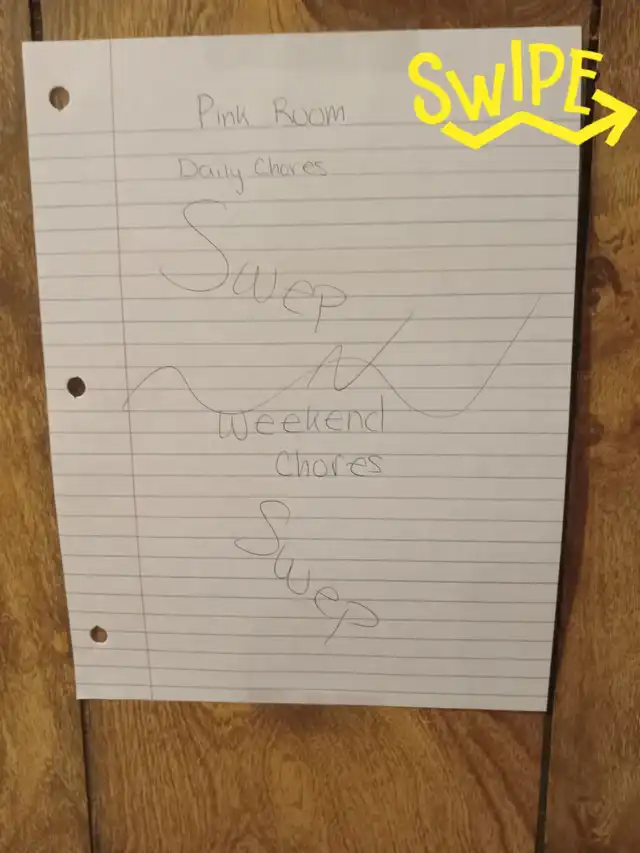 SWIPE
Pink Room
Daily Chores
Swep
Weekend
Chores
Swep